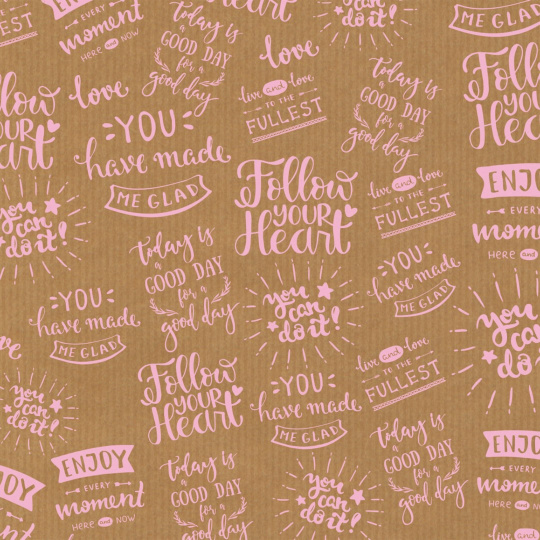 EVERY
moment
HERE and NOW
today is a
GOOD DAY
for a
good day
love
you
can
do it!
ME GLAD
love
YOU
have made
ME GLAD
live and love
TO THE
FULLEST
today is
a
GOOD DAY
for a
good day
Follow
YOUR
Heart
Follow
YOUR
Heart
Follow
YOUR
Heart
live and love
TO THE
FULLEST
ENJOY
EVERY
moment
HERE and
you
can
do it!
today is
a
GOOD DAY
for a
good day
YOU
have made
ME GLAD
YOU
have made
ME GLAD
you
can
do it!
you
can
do
love
you
can
do it!
Follow
YOUR
Heart
YOU
have made
ME GLAD
live and love
TO THE
FULLEST
ENJOY
EVERY
moment
HERE and NOW
today is
a
GOOD DAY
for a
good day
you
can
do it!
today is
a
GOOD DAY
for a
good day
ENJOY
EVERY
moment
ENJOY